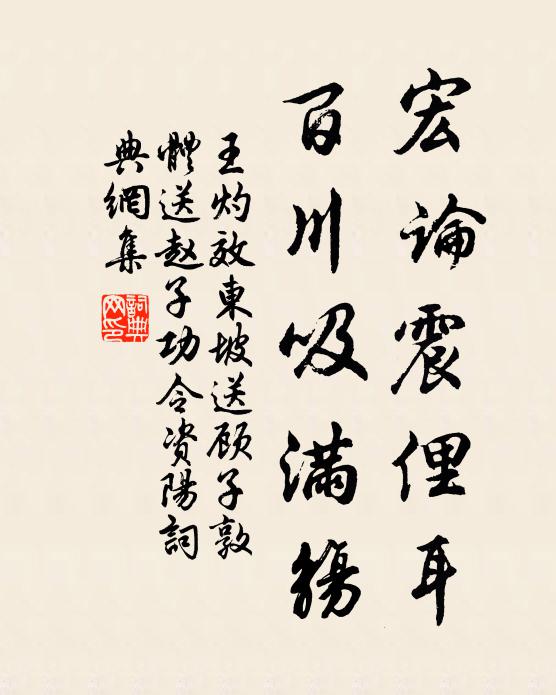 宏論震俚耳
百川吸滿觴
王灼效東坡送顾子敦
體送赵子功令资陽詞
典網集
詞典网印